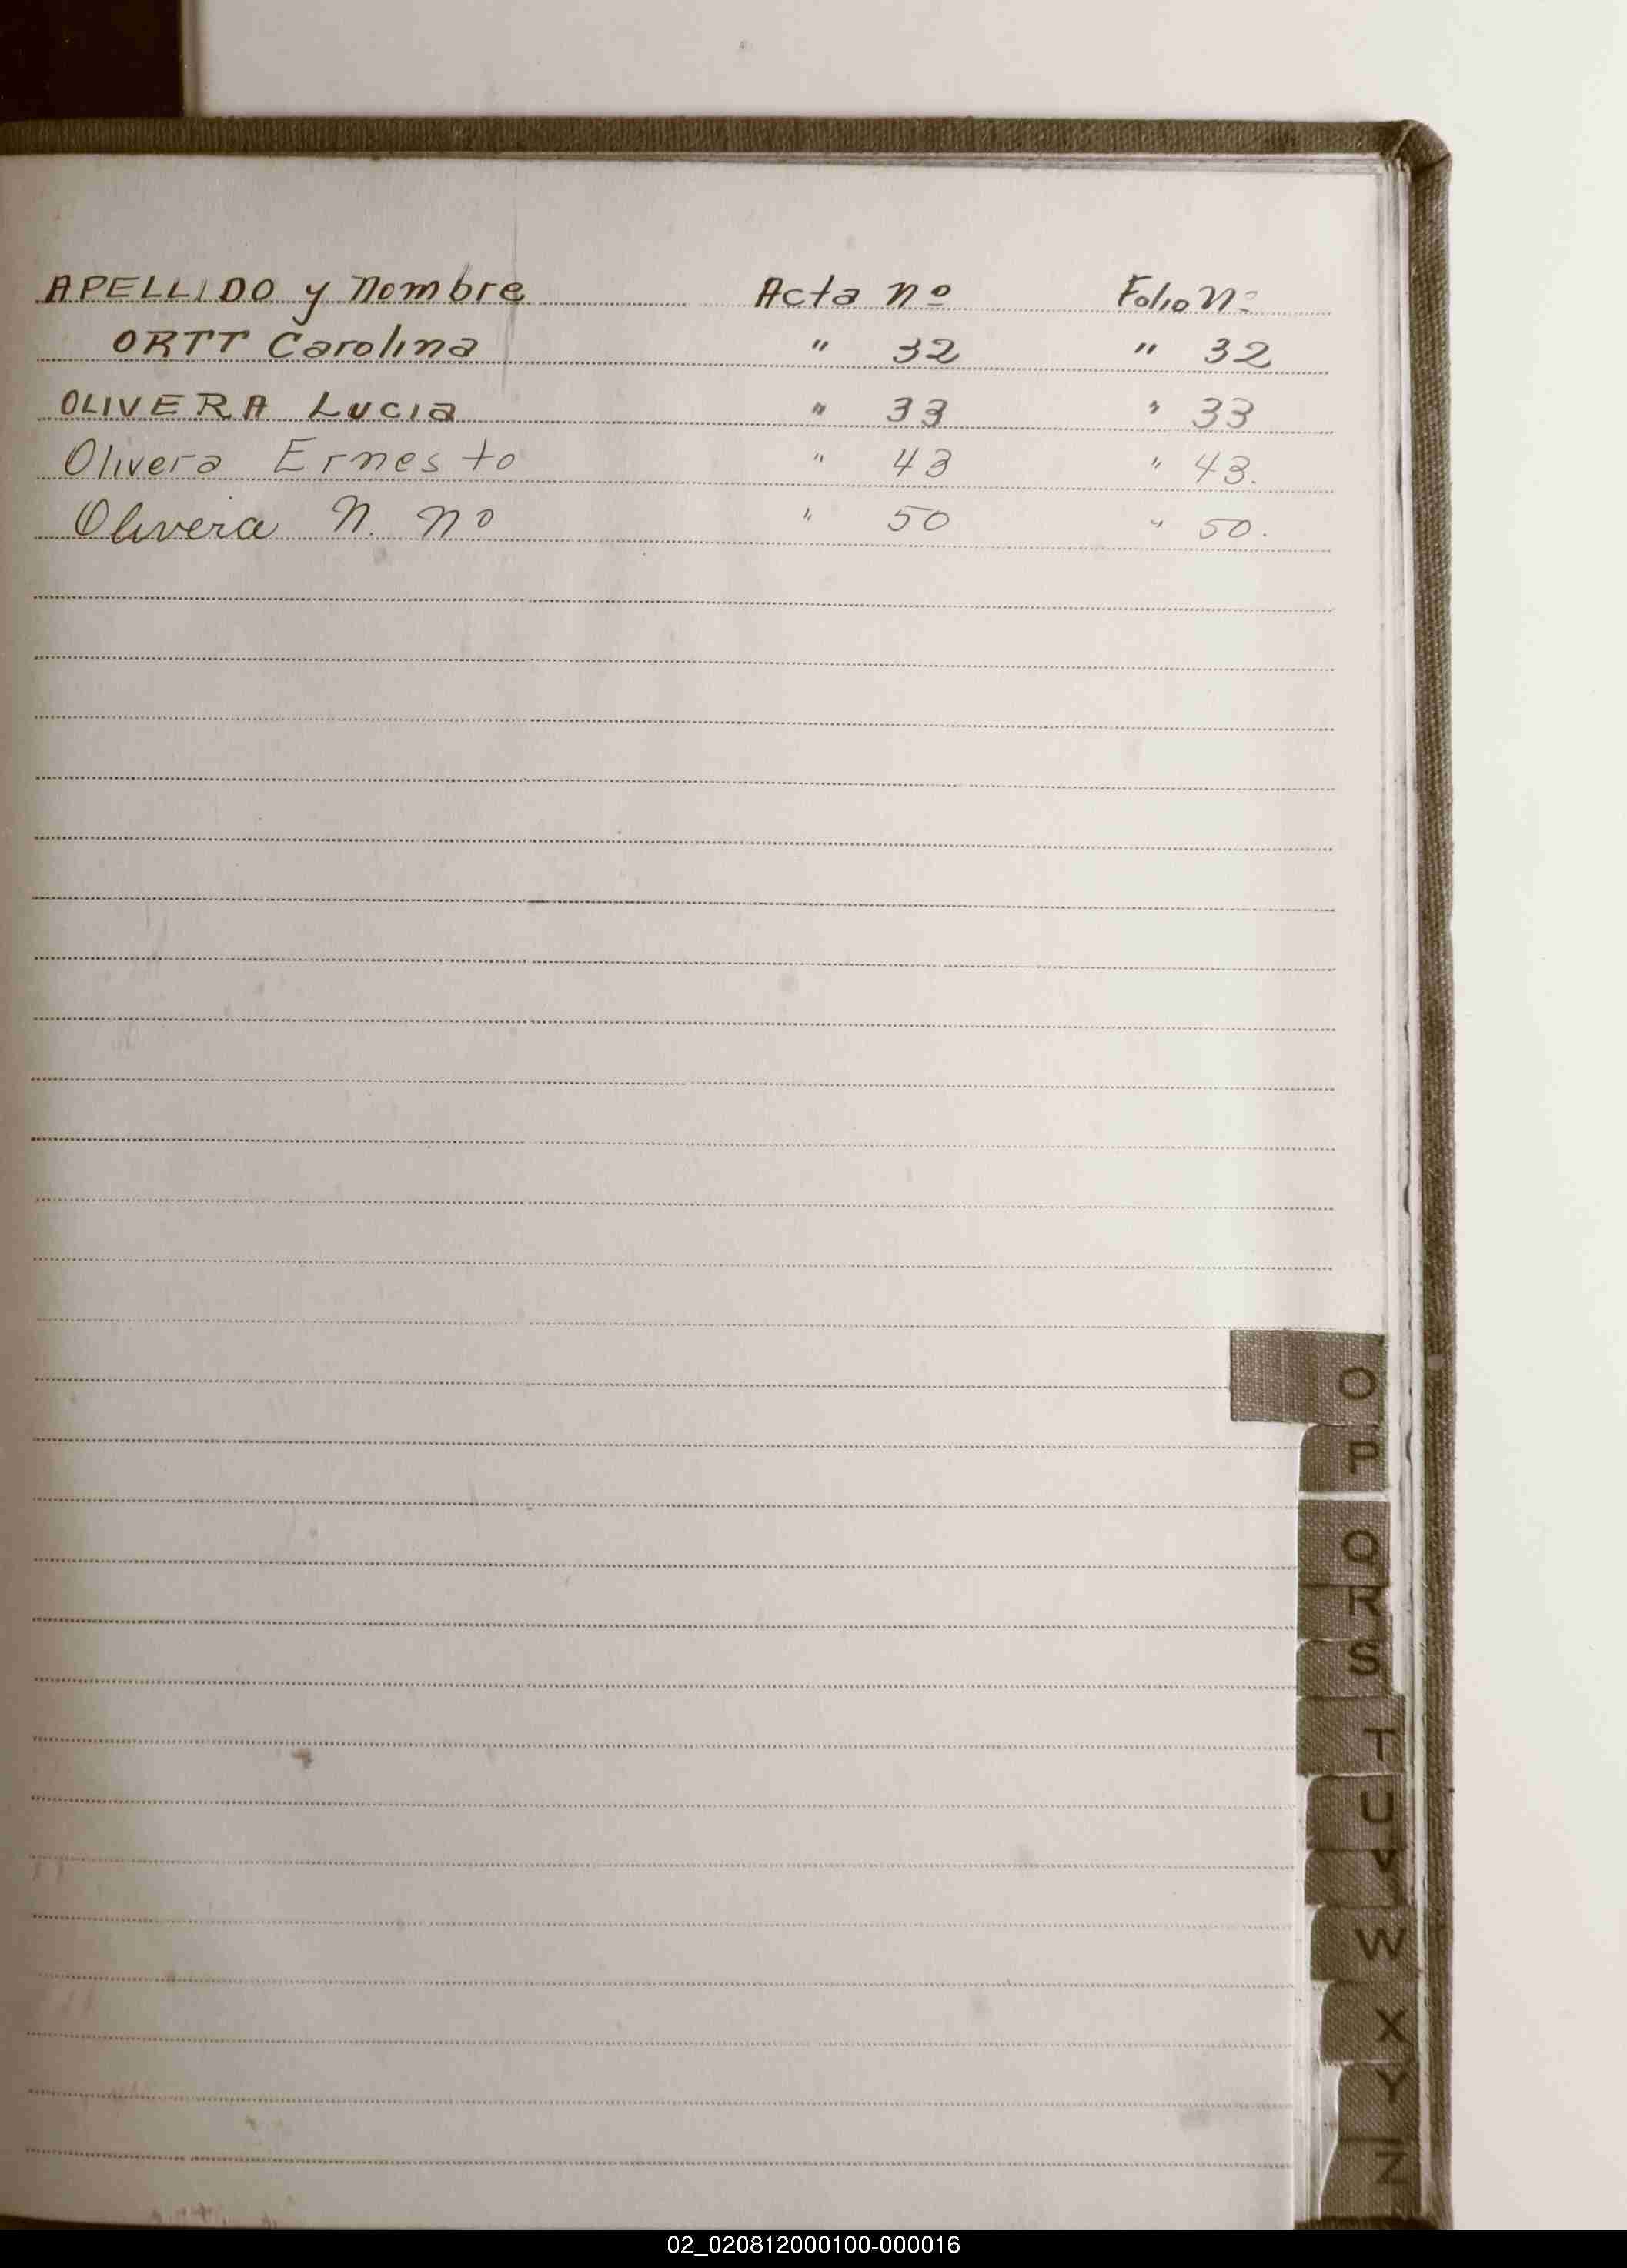 APELLIDO y Nombre Acta nº Folio Nº
ORTT Carolina " 32 " 32
OLIVERA Lucia " 33 " 33
Olivera Ernesto " 43 " 43.
Olivera N. Nº " 50 " 50.
O
P
Q
R
S
T
U
V
W
X
Y
Z
02_020812000100-000016